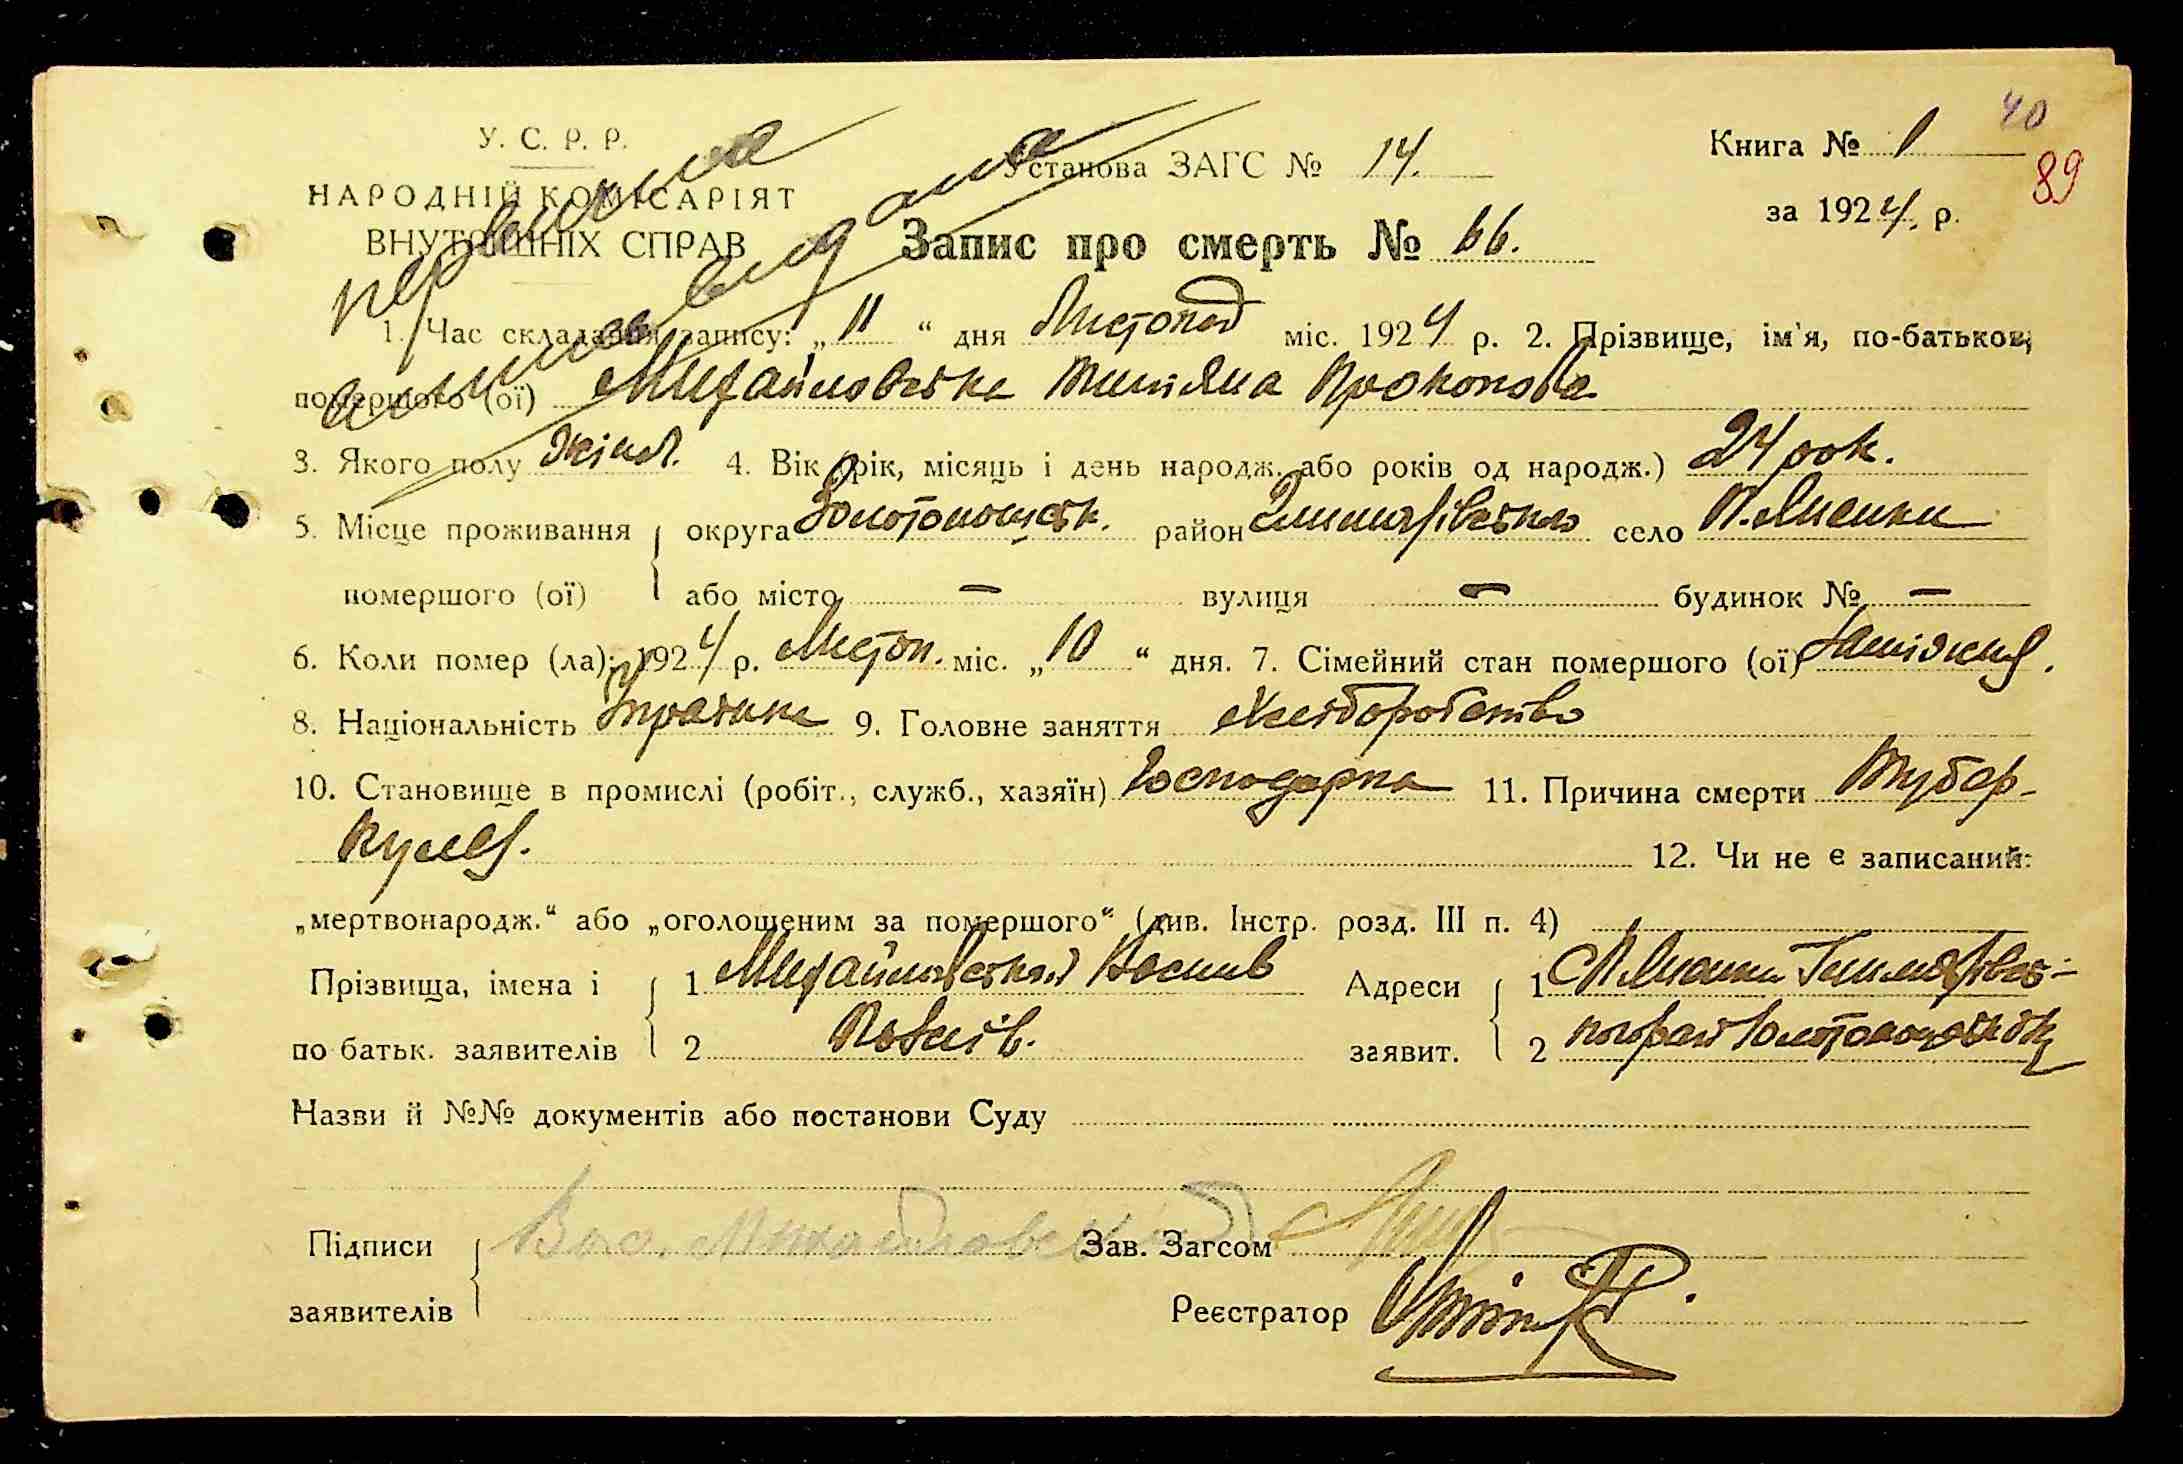 40
У. С. Р. Р. Установа ЗАГС № 14. Книга № 1
89
НАРОДНІЙ КОМІСАРІЯТ за 1924. р.
ВНУТРІШНІХ СПРАВ Запис про смерть № 66.
1. Час складання запису: „11“ дня Листопад міс. 1924 р. 2. Прізвище, ім'я, по-батькові
помершого (ої) Михайловська Титяна Прокопова
3. Якого полу жіноч. 4. Вік (рік, місяць і день народж. або років од народж.) 24 рок.
5. Місце проживання округа Золотоношськ. район село П. Лисики
помершого (ої) або місто — вулиця — будинок № —
6. Коли помер (ла): 1924 р. Листоп. міс. „10“ дня. 7. Сімейний стан помершого (ої) Замізжня.
8. Національність Українка 9. Головне заняття Хлеборобство
10. Становище в промислі (робіт., служб., хазяїн) Господарка 11. Причина смерти Тубер-
кулез. 12. Чи не є записаний:
„мертвонародж.“ або „оголошеним за помершого“ (див. Інстр. розд. III п. 4)
Прізвища, імена і 1 Михайловський Адреси 1
по батьк. заявителів 2 заявит. 2
Назви й №№ документів або постанови Суду
Підписи Вас. Михайловский Зав. Загсом
заявителів Реєстратор